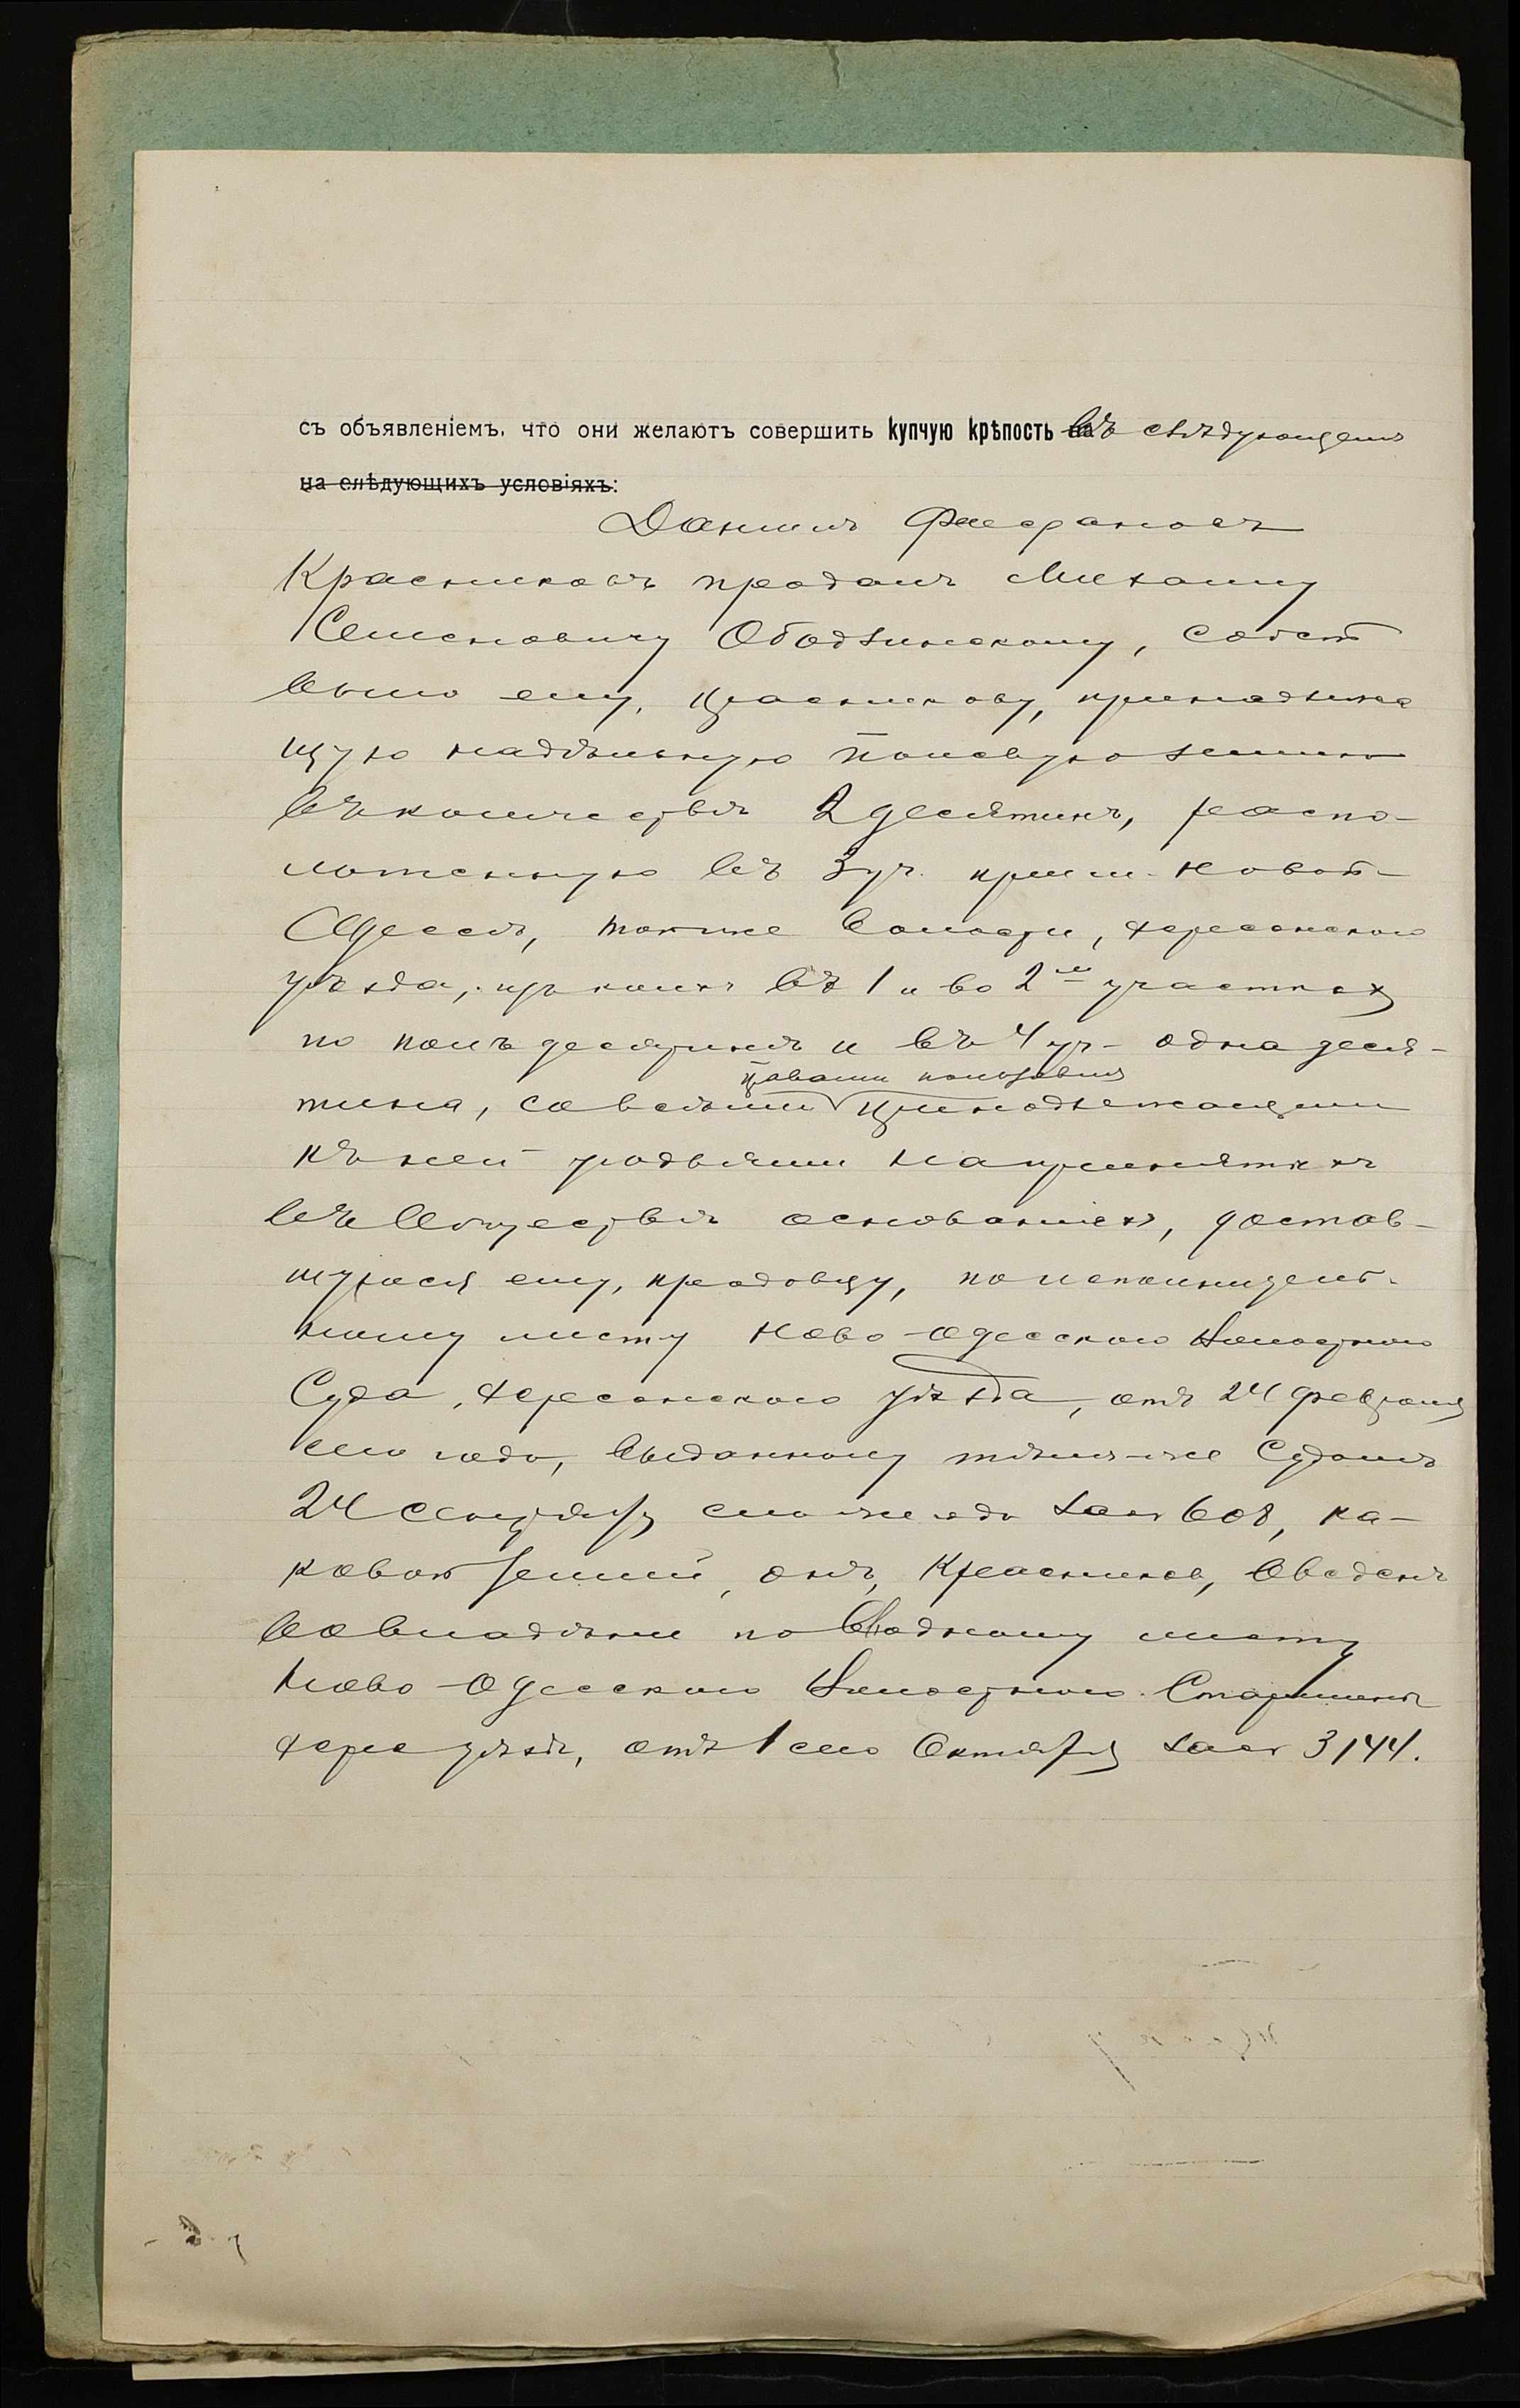 съ объявленіемъ, что они желаютъ совершить купчую крѣпость въ слѣдующемъ
на слѣдующихъ условіяхъ:
Данiилъ
Красниковъ продалъ Михаилу
Семеновичу Ободзинскому, собст
венно ему, Красникову, принадлежа
щую надѣльную полевую землю
въ количествѣ 2 десятинъ, распо-
ложенную въ 3 уч. при м. Новой-
Одессѣ, той же волости, Херсонскаго
уѣзда, изъ коихъ въ 1 и во 2м участкахъ
по полъ десятинѣ и въ 4 уч- одна деся-
правами пользованія
тина, со всѣми принадлежащими
къ ней угодьями на принятыхъ
въ Обществѣ основаніяхъ, достав-
шуюся ему, продавцу, по исполнитель-
ному листу Ново-Одесскаго Волостного
Суда, Херсонскаго уѣзда, отъ 24 февраля
сего года, выданному тѣмъ-же Судомъ
24 Сентября сего же года за № 608, ка-
ковой землей, онъ, Красниковъ, введенъ
во владѣніе по вводному листу
Ново-Одесскаго Волостного Старшины
Херс уѣзда, отъ 1 сего Октября за № 3144.